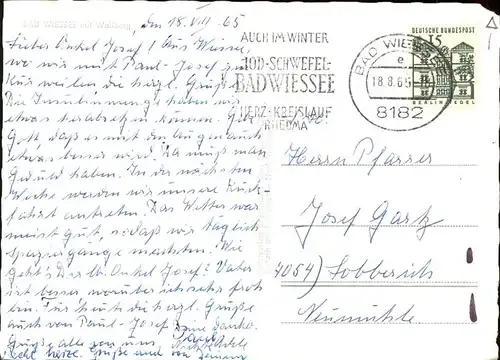 BAD WIESSEE mit Wallberg
den 18. VIII. 65
Lieber Onkel Josef! Aus Wiessee,
wo wir mit Paul-Josef zur
Kur weilen die herzl. Grüße.
Die haben wir
etwas herabsetzen können. Gebe
Gott, daß es mit den Augen auch
etwas besser wird. Da muß man
Geduld haben. In der nächsten
Woche werden wir unsere Rück-
fahrt antreten. Das Wetter war
meist gut, sodaß wir täglich
Spaziergänge machten. Wie
geht's Dir lb. Onkel Josef? Vater
ist besser worüber ich sehr froh
bin. Für heute die herzl. Grüße
auch von Paul-Josef
Grüße alle von uns
herzl. Grüße und von
AUCH IM WINTER
JOD-SCHWEFEL-
BAD WIESSEE
HERZ·KREISLAUF
RHEUMA
BAD WIESSEE
e
18.8.65
8182
DEUTSCHE BUNDESPOST
15
BERLIN-TEGEL
Herrn Pfarrer
Josef Gartz
4054) Lobberich
Neumühle